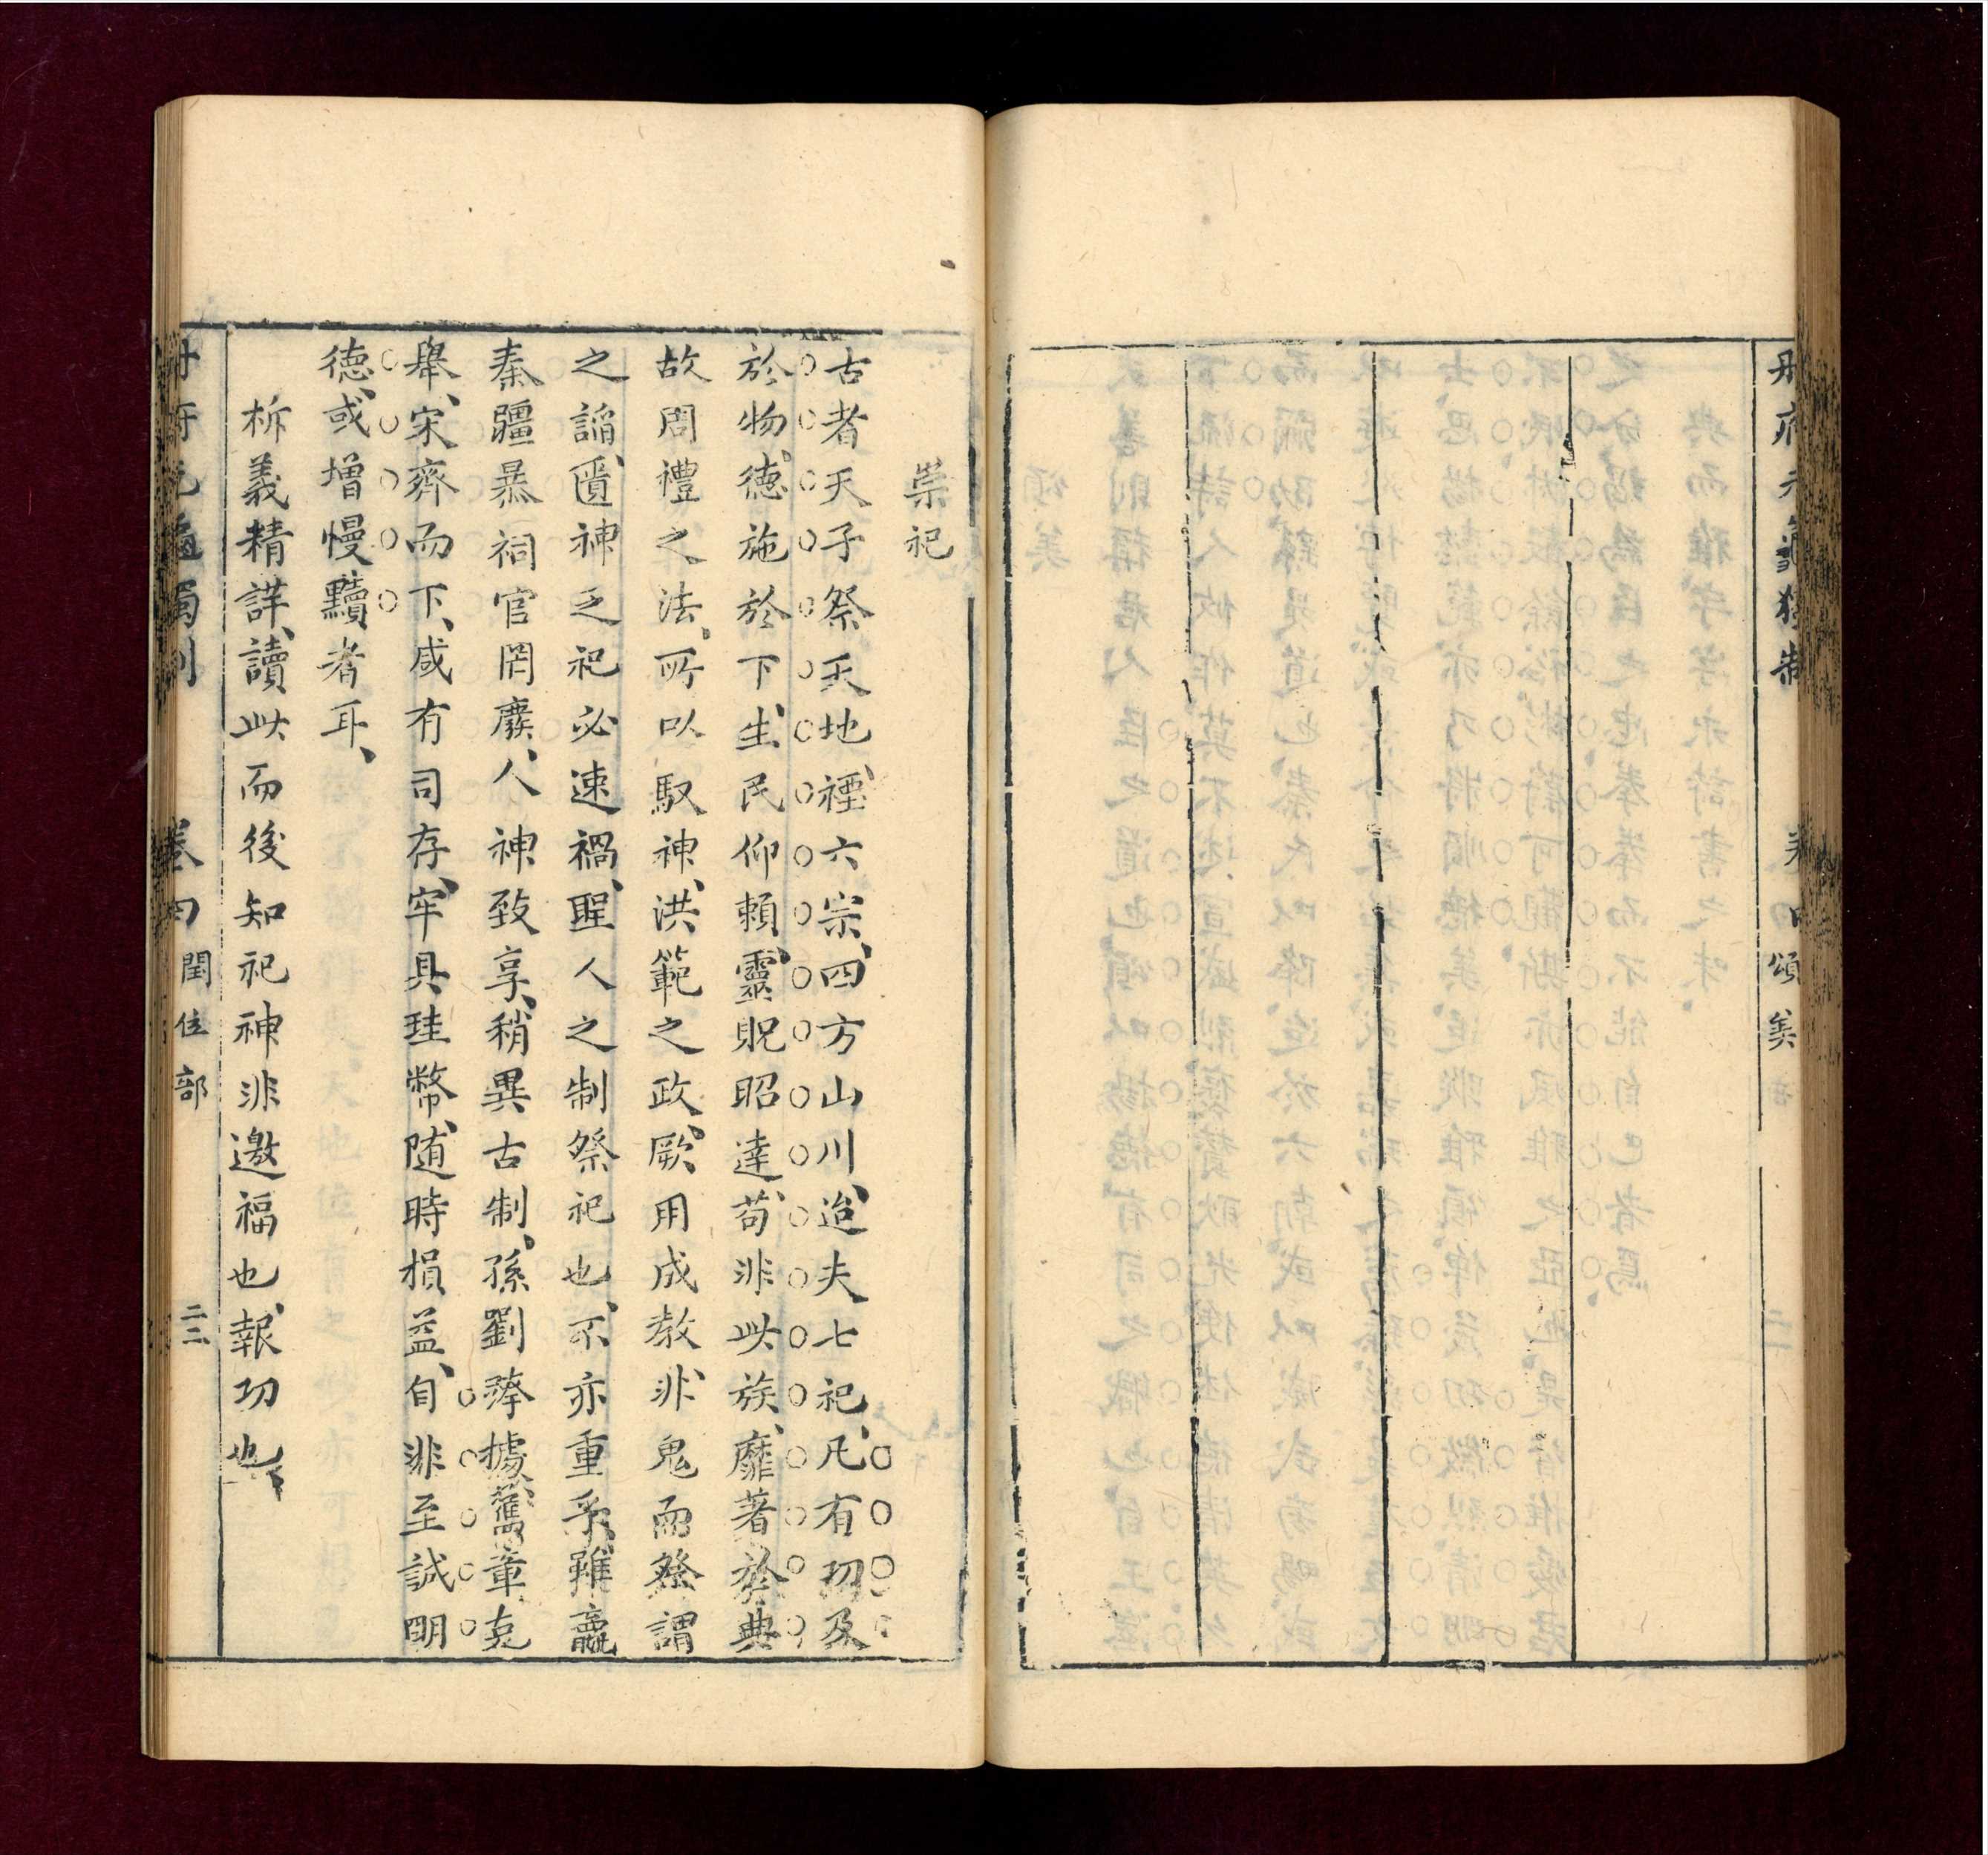 册府元龜獨制
卷四
頌美
崇祀
古者天子祭天地、禋六宗、四方山川、迨夫七祀、凡有功及
於物、德施於下、生民仰賴、靈貺昭達、苟非此族、靡著於典
故周禮之法、所以馭神、洪範之政、厥用成教、非鬼而祭謂
之謟、匱神乏祀必速禍、聖人之制祭祀也、不亦重乎、雖嬴
秦彊暴祠官罔廢、人神致享、稍異古制、孫劉攣據、舊章克
舉、宋齊而下、咸有司存、牢具珪幣、随時損益、自非至誠明
德、或增慢黷者耳、
析義精詳、讀此而後知祀神非邀福也、報功也
卷四
閏位部
二二